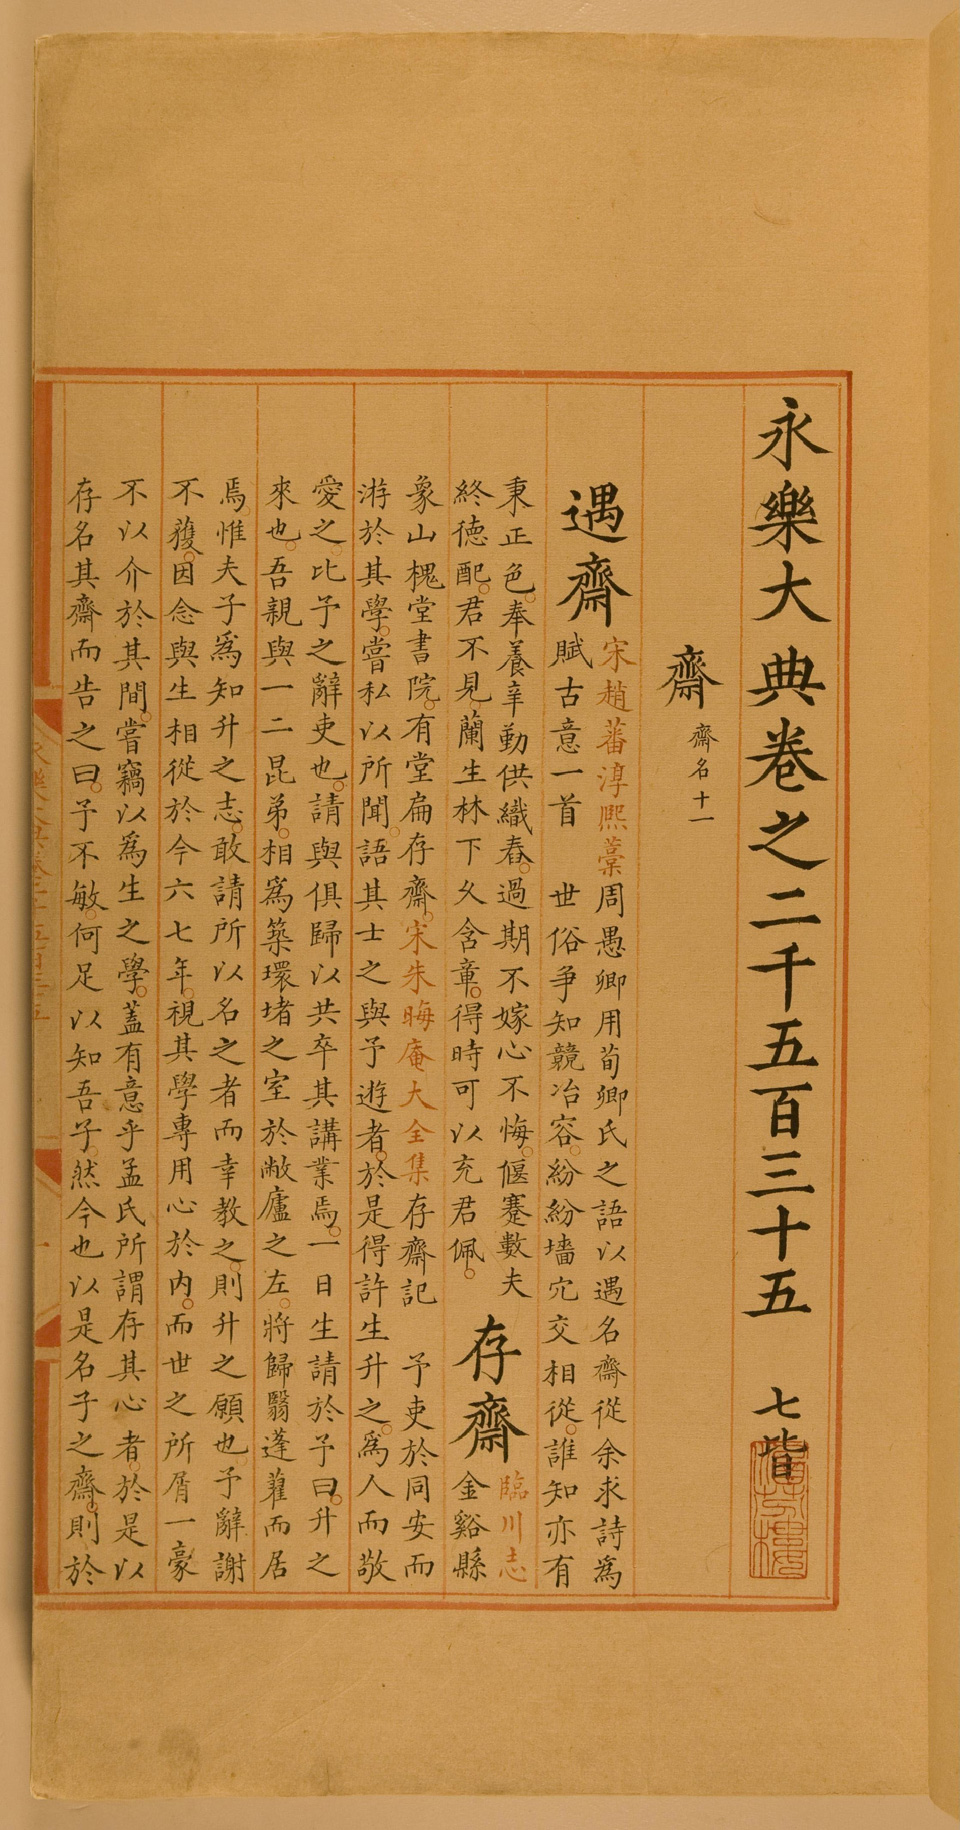 永樂大典卷之二千五百三十五 七皆
齋 齋名十一
遇齋 宋趙蕃淳熈藁周愚卿用荀卿氏之語以遇名齋從余求詩爲
賦古意一首 世俗争知競冶容紛紛墻宂交相從誰知亦有
秉正色奉養辛勤供織舂過期不嫁心不悔偃蹇數夫
終德配君不見蘭生林下久含章得時可以充君佩 存齋 臨川志
金谿縣
象山槐堂書院有堂扁存齋宋朱晦庵大全集存齋記 予吏於同安而
游於其學嘗私以所聞語其士之與予遊者於是得許生升之爲人而敬
愛之比予之辭吏也請與俱歸以共卒其講業焉一日生請於予曰升之
來也吾親與一二昆弟相爲築環堵之室於敝廬之左將歸翳蓬藋而居
焉惟夫子爲知升之志敢請所以名之者而幸教之則升之願也予辭謝
不獲因念與生相從於今六七年視其學專用心於内而世之所屑一豪
不以介於其間嘗竊以爲生之學蓋有意乎孟氏所謂存其心者於是以
存名其齋而告之曰予不敏何足以知吾子然今也以是名子之齋則於